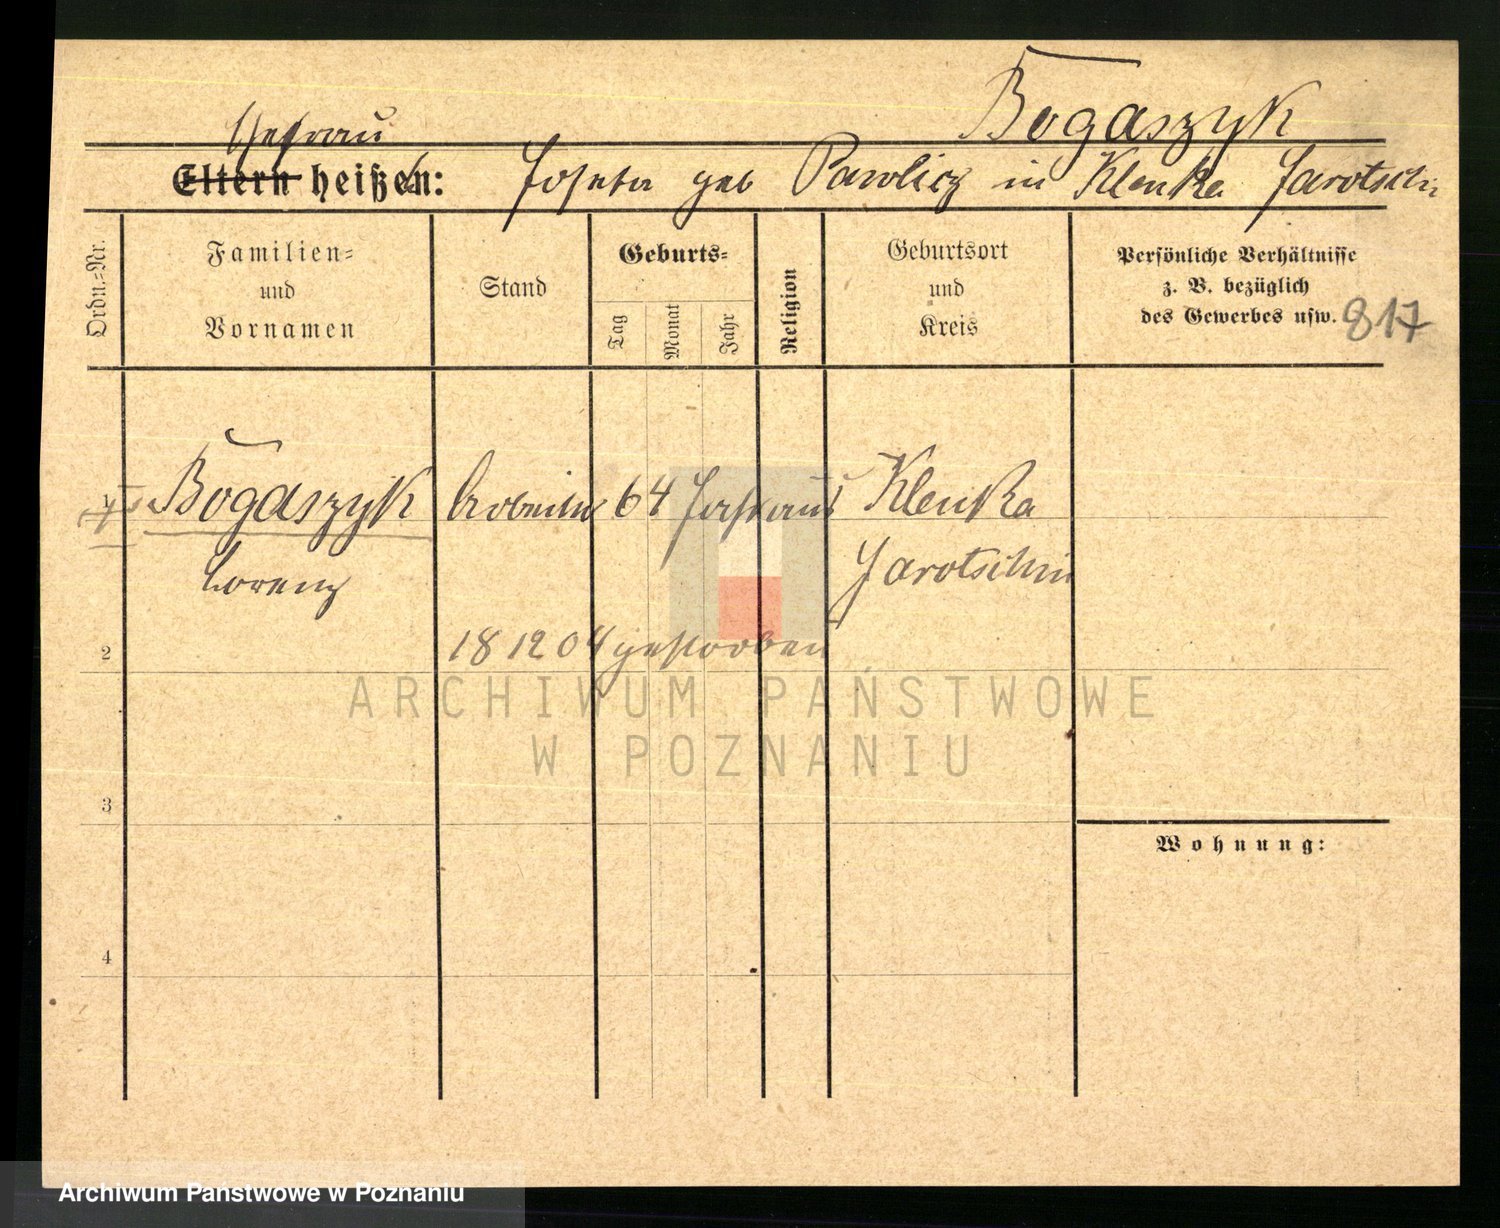 Bogaszyk
Ehefrau
Eltern heißen: Josefa geb Pawlicz in Klenka Jarotschin
Ordn.=Nr.
Familien=
und
Vornamen
Stand
Geburts=
Tag
Monat
Jahr
Religion
Geburtsort
und
Kreis
Persönliche Verhältnisse
z. B. bezüglich
des Gewerbes usw. 817
1 Bogaszyk Arbeiter 64 Jahr aus Klenka
Lorenz Jarotschin
2 18 12 04 gestorben
3
4
Wohnung:
ARCHIWUM PAŃSTWOWE
W POZNANIU
Archiwum Państwowe w Poznaniu